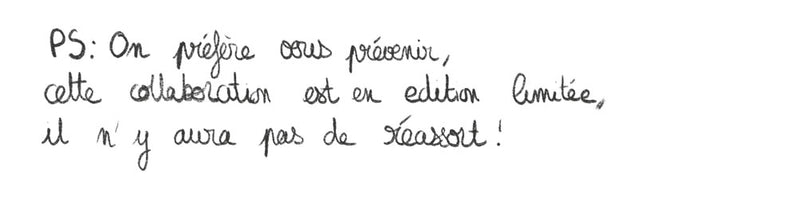 PS: On préfère vous prévenir,
cette collaboration est en edition limitée,
il n'y aura pas de réassort !